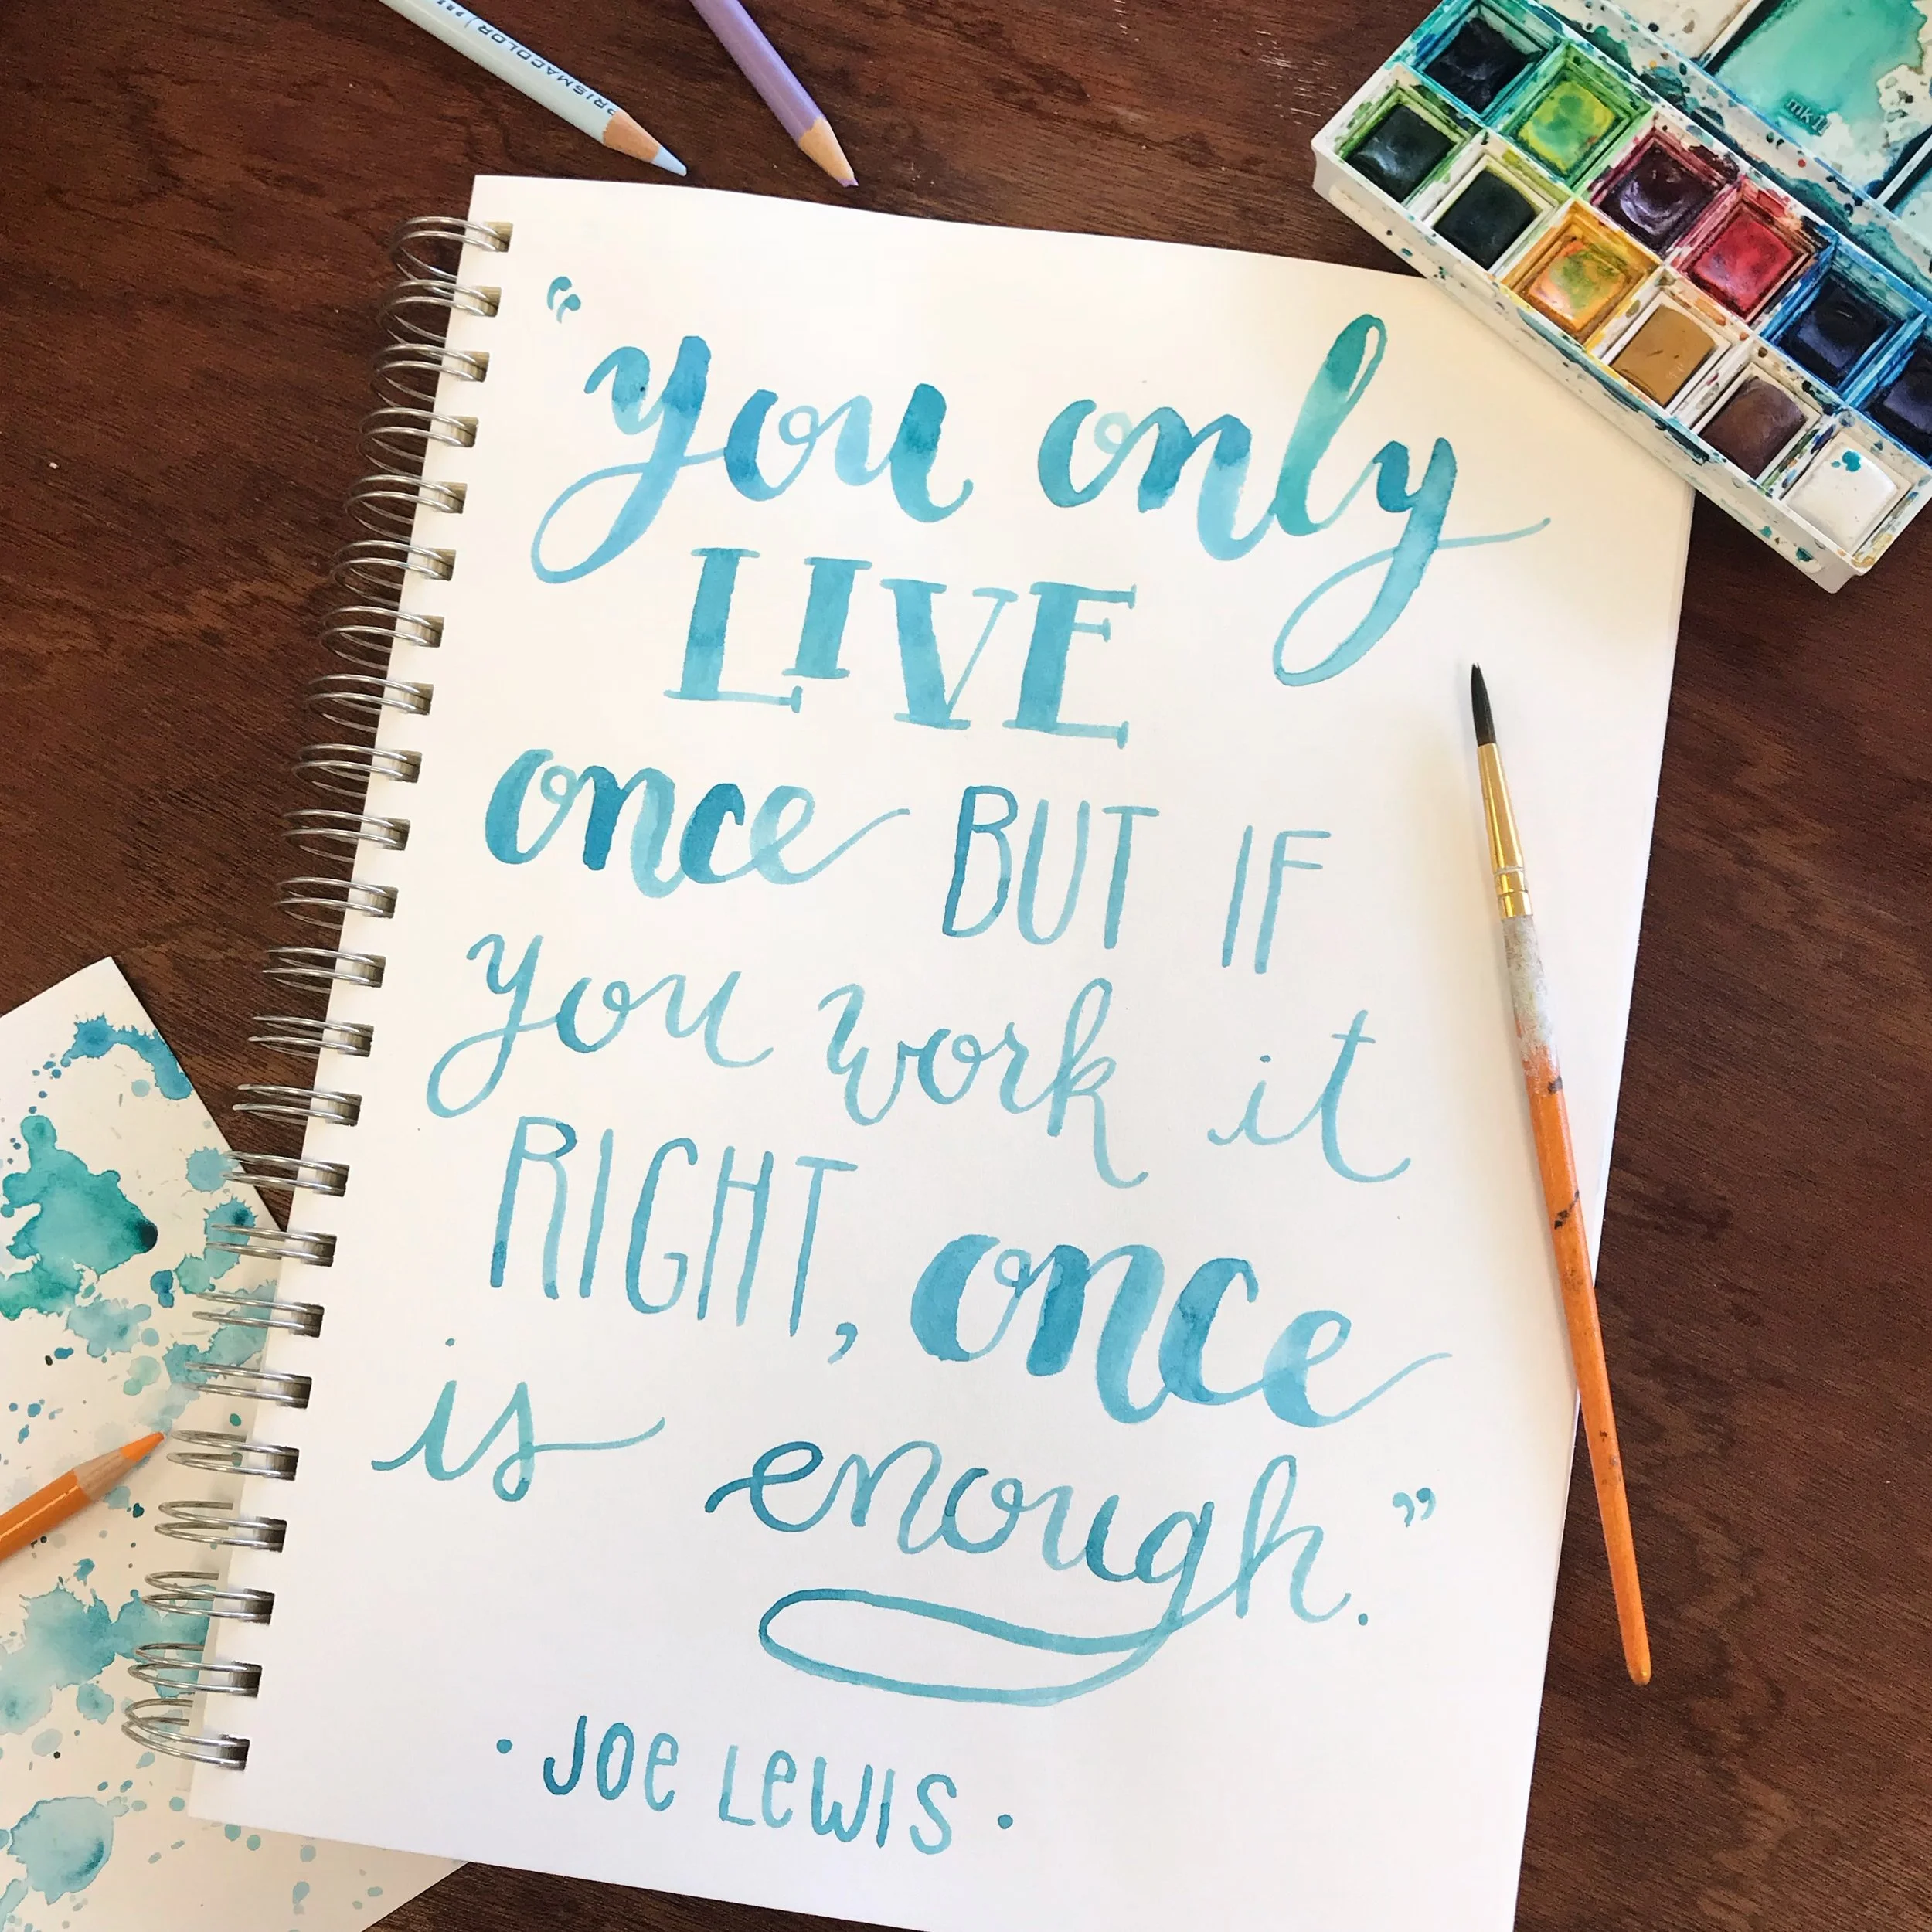 PRISMACOLOR
mk II
“you only
LIVE
once BUT IF
you work it
RIGHT, once
is enough.”
· JOE LEWIS ·